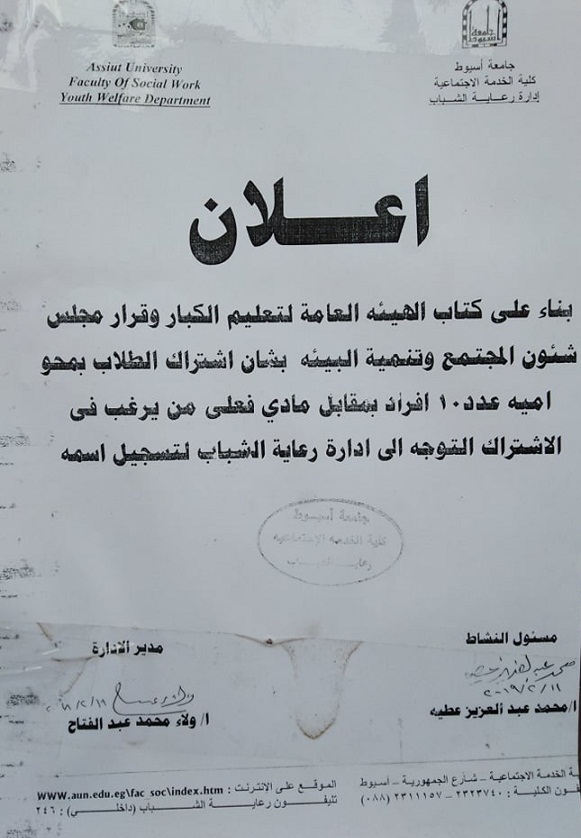 Assiut University
Faculty Of Social Work
Youth Welfare Department
جامعة أسيوط
كلية الخدمة الاجتماعية
إدارة رعايــة الشباب
اعـــلان
بناء على كتاب الهيئه العامة لتعليم الكبار وقرار مجلس
شئون المجتمع وتنمية البيئه بشان اشتراك الطلاب بمحو
اميه عدد١٠ افراد بمقابل مادي فعلى من يرغب فى
الاشتراك التوجه الى ادارة رعاية الشباب لتسجيل اسمه
جامعة أسيوط
كلية الخدمه الإجتماعيه
رعاية الشباب
مسئول النشاط
٢٠١٩/٢/١١
ا/محمد عبد العزيز عطيه
مدير الادارة
ا/ ولاء محمد عبد الفتاح
ة الخدمة الاجتماعية – شارع الجمهورية – أسيوط
فون الكلية : ٢٣٢٣٧٤٠ – ٢٣١١١٥٧ (٠٨٨)
الموقع على الانترنت : www.aun.edu.eg\fac_soc\index.htm
تليفون رعاية الشباب (داخلى) : ٢٤٦